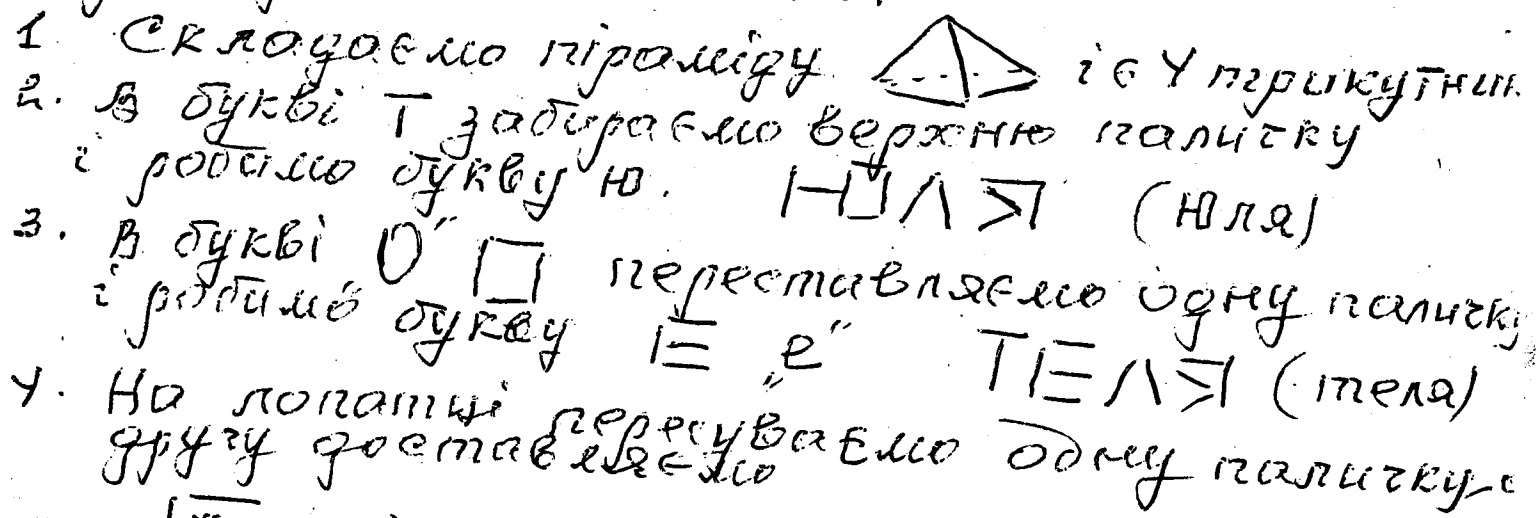 1 Складаємо піраміду і є 4 трикутник
2. В букві Т забираємо верхню паличку
і робимо букву Ю. ЮЛЯ (Юля)
3. В букві "О" переставляємо одну паличку
і робимо букву Е "е" ТЕЛЯ (теля)
4. На лопатці пересуваємо одну паличку і
другу доставляємо